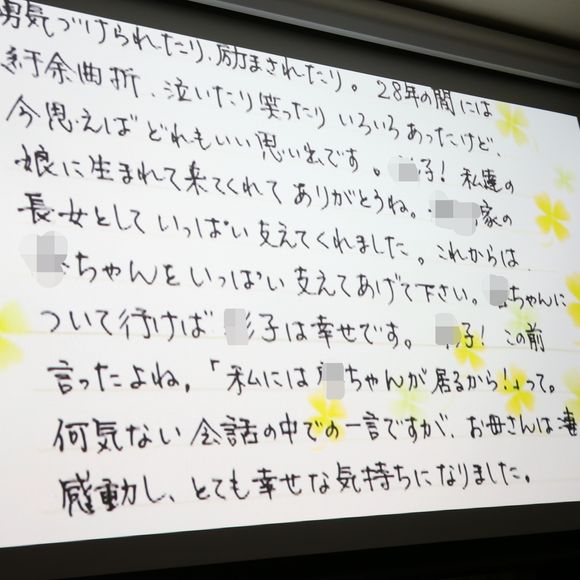 勇気づけられたり、励まされたり。28年の間には
紆余曲折、泣いたり笑ったりいろいろあったけど、
今思えばどれもいい思い出です。子!私達の
娘に生まれて来てくれてありがとうね。家の
長女としていっぱい支えてくれました。これからは
ちゃんをいっぱい支えてあげて下さい。ちゃんに
ついて行けば彩子は幸せです。子!この前
言ったよね。「私にはちゃんが居るから!」って。
何気ない会話の中での一言ですが、お母さんは凄
感動し、とても幸せな気持ちになりました。